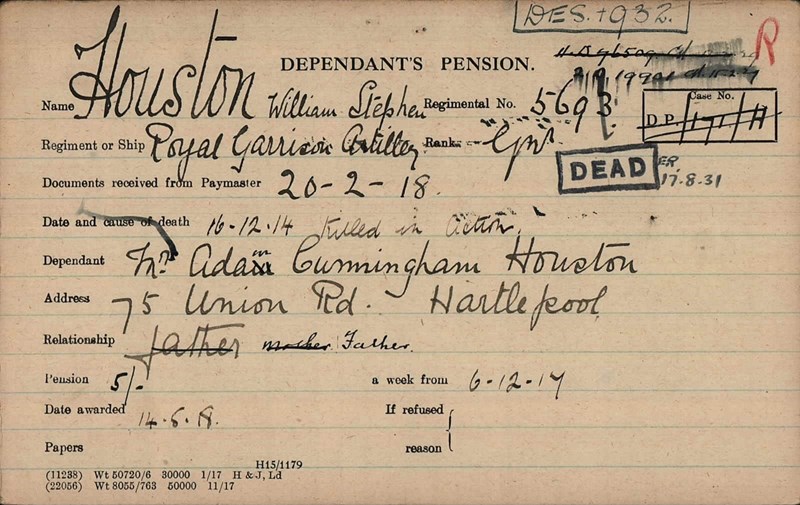 DES. 1932.
DEPENDANT'S PENSION.
R
Name Houston William Stephen Regimental No. 5693
Case No.
D.P./171/H
Regiment or Ship Royal Garrison Artillery Rank Gnr
DEAD
17.8.31
Documents received from Paymaster 20-2-18.
Date and cause of death 16-12-14 Killed in Action.
Dependant Mr Adam Cunningham Houston
Address 75 Union Rd. Hartlepool
Relationship father mother Father.
Pension 5/- a week from 6-12-17
Date awarded 14.6.18. If refused
Papers reason
H15/1179
(11238) Wt 50720/6 30000 1/17 H & J, Ld
(22056) Wt 8055/763 50000 11/17